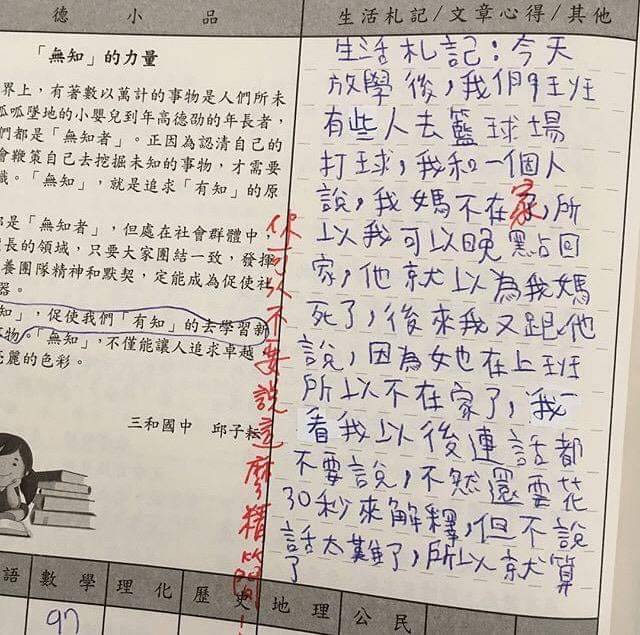 德 小 品
「無知」的力量
界上，有著數以萬計的事物是人們所未
呱墜地的小嬰兒到年高德劭的年長者，
們都是「無知者」。正因為認清自己的
會鞭策自己去挖掘未知的事物，才需要
識。「無知」，就是追求「有知」的原
是「無知者」，但處在社會群體中，
長的領域，只要大家團結一致，發揮
養團隊精神和默契，定能成為促使社
器。
知」，促使我們「有知」的去學習新
事物。「無知」，不僅能讓人追求卓越
麗的色彩。
三和國中 邱子耘
你可以不要說這麼精簡!
生活札記/文章心得/其他
生活札記：今天
放學後，我們班
有些人去籃球場
打球，我和一個人
說，我媽不在家，所
以我可以晚點回
家，他就以為我媽
死了，後來我又跟他
說，因為她在上班
所以不在家了，我一
看我以後連話都
不要說，不然還要花
30秒來解釋，但不說
話太難了，所以就算
了
語 數學 理化 歷史 地理 公民
97